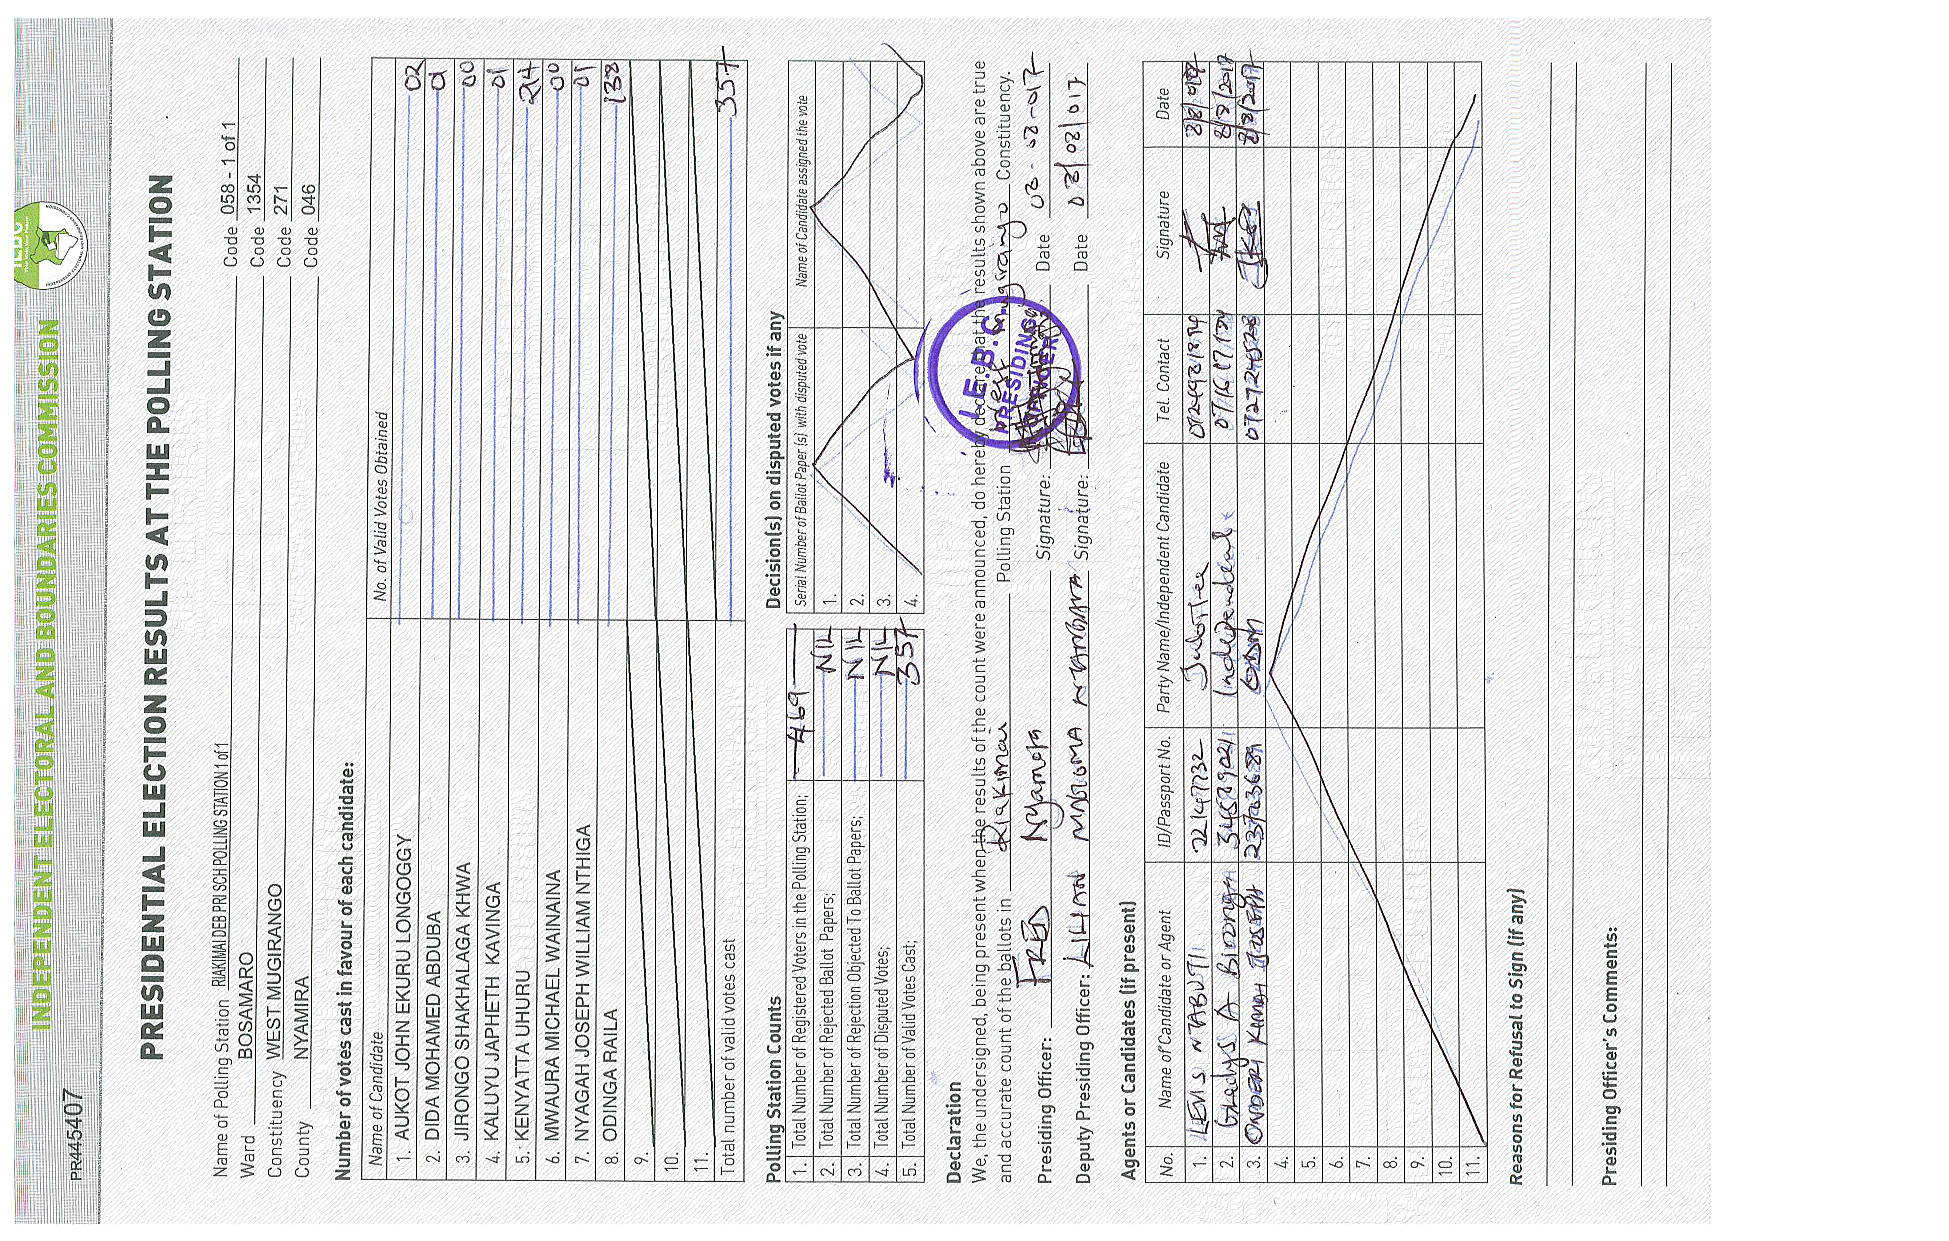 PR445407
INDEPENDENT ELECTORAL AND BOUNDARIES COMMISSION
PRESIDENTIAL ELECTION RESULTS AT THE POLLING STATION
Name of Polling Station RIAKIMAI DEB PRI SCH POLLING STATION 1 of 1 Code 058 - 1 of 1
Ward BOSAMARO Code 1354
Constituency WEST MUGIRANGO Code 271
County NYAMIRA Code 046
Number of votes cast in favour of each candidate:
Name of Candidate No. of Valid Votes Obtained
1. AUKOT JOHN EKURU LONGOGGY 02
2. DIDA MOHAMED ABDUBA 01
3. JIRONGO SHAKHALAGA KHWA 00
4. KALUYU JAPHETH KAVINGA 01
5. KENYATTA UHURU 214
6. MWAURA MICHAEL WAINAINA 00
7. NYAGAH JOSEPH WILLIAM NTHIGA 01
8. ODINGA RAILA 138
9.
10.
11.
Total number of valid votes cast 357
Polling Station Counts
1. Total Number of Registered Voters in the Polling Station; 469
2. Total Number of Rejected Ballot Papers; NIL
3. Total Number of Rejection Objected To Ballot Papers; NIL
4. Total Number of Disputed Votes; NIL
5. Total Number of Valid Votes Cast; 357
Decision(s) on disputed votes if any
Serial Number of Ballot Paper (s) with disputed vote Name of Candidate assigned the vote
1.
2.
3.
4.
Declaration
We, the undersigned, being present when the results of the count were announced, do hereby declare that the results shown above are true
and accurate count of the ballots in Riakimai Polling Station West Mugirango Constituency.
Presiding Officer: FRED Nyamota Signature: Date 08-08-017
Deputy Presiding Officer: LILIAN Signature: Date 08/08/017
I.E.B.C.
PRESIDING
OFFICER
Agents or Candidates (if present)
No. Name of Candidate or Agent ID/Passport No. Party Name/Independent Candidate Tel. Contact Signature Date
1. LEWIS NTABUTII 22147732 Jubilee
2. Gladys A Independent 8/8/2017
3. ONDERI JOSEPH ODM 8/8/2017
4.
5.
6.
7.
8.
9.
10.
11.
Reasons for Refusal to Sign (if any)
Presiding Officer's Comments: